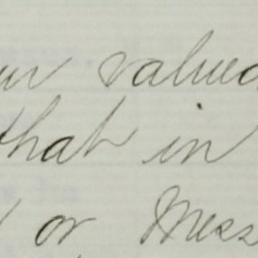 valued
that in
or, Mess